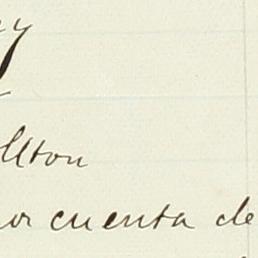 llton
por cuenta de